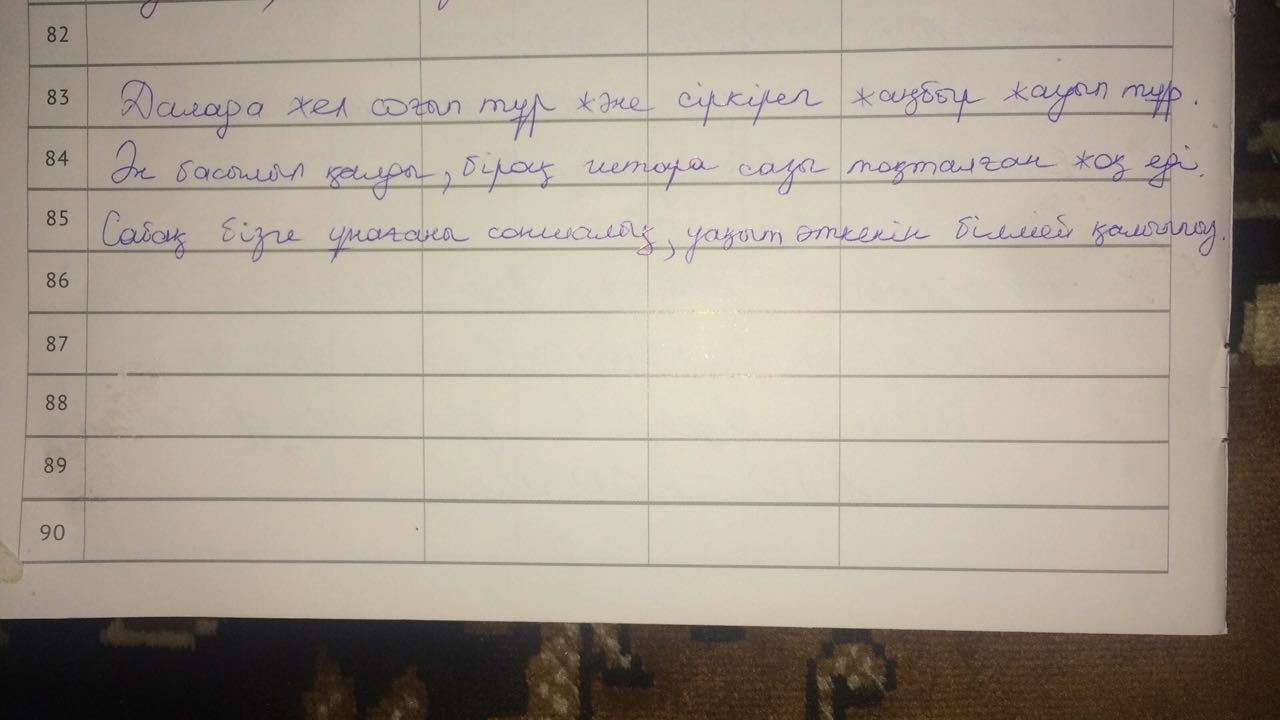 82
83 Далада жел соғып тұр және сіркіреп жаңбыр жауып тұр.
84 Ән басылып қалды, бірақ гитара сазы тоқталған жоқ еді.
85 Сабақ бізге ұнағаны соншалық, уақыт өткенін білмей қалыппыз.
86
87
88
89
90